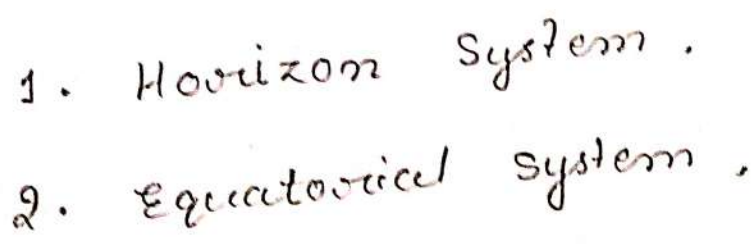 1. Horizon System.
2. Equatorial System.